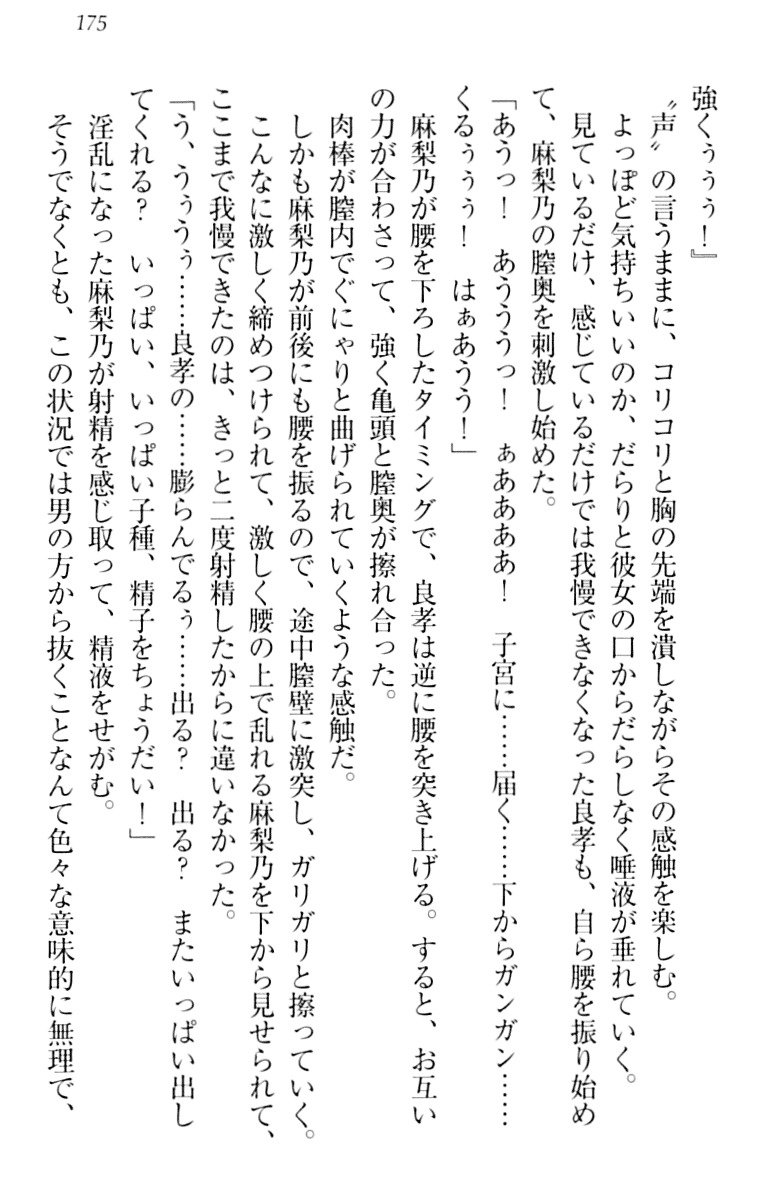 175
強くぅぅぅ！』
〝声〟の言うままに、コリコリと胸の先端を潰しながらその感触を楽しむ。
よっぽど気持ちいいのか、だらりと彼女の口からだらしなく唾液が垂れていく。
見ているだけ、感じているだけでは我慢できなくなった良孝も、自ら腰を振り始め
て、麻梨乃の膣奥を刺激し始めた。
「あうっ！　あううっ！　ぁああああ！　子宮に……届く……下からガンガン……
くるぅぅぅ！　はぁあうう！」
麻梨乃が腰を下ろしたタイミングで、良孝は逆に腰を突き上げる。すると、お互い
の力が合わさって、強く亀頭と膣奥が擦れ合った。
肉棒が膣内でぐにゃりと曲げられていくような感触だ。
しかも麻梨乃が前後にも腰を振るので、途中膣壁に激突し、ガリガリと擦っていく。
こんなに激しく締めつけられて、激しく腰の上で乱れる麻梨乃を下から見せられて、
ここまで我慢できたのは、きっと二度射精したからに違いなかった。
「う、うぅうぅ……良孝の……膨らんでるぅ……出る？　出る？　またいっぱい出し
てくれる？　いっぱい、いっぱい子種、精子をちょうだい！」
淫乱になった麻梨乃が射精を感じ取って、精液をせがむ。
そうでなくとも、この状況では男の方から抜くことなんて色々な意味的に無理で、